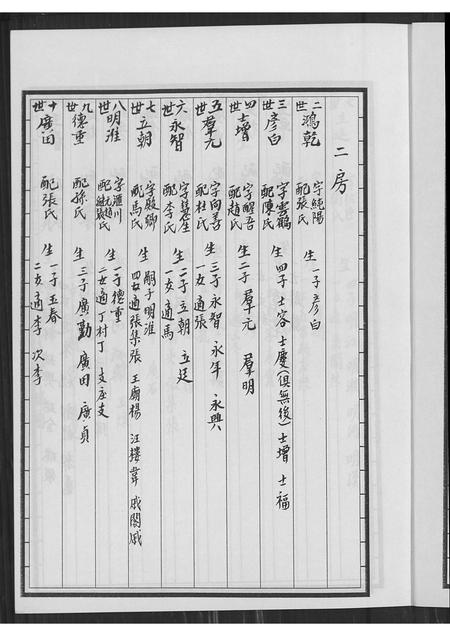 二房
二世 鴻乾 字純陽 配張氏 生 一子彥白
三世 彥白 字雲鶴 配陳氏 生 四子 士容 士慶(俱無後) 士增 士福
四世 士增 字醒吾 配趙氏 生 二子 羣元 羣明
五世 羣元 字尚善 配杜氏 生 三子 永智 永年 永興 一女適張
六世 永智 字慧生 配李氏 生 二子 立朝 立廷 一女適馬
七世 立朝 字殿卿 配馬氏 生 嗣子明淮 四女適張集張 王廟楊 汪樓韋 戚閣戚
八世 明淮 字滙川 配 趙氏 繼 氏 生 一子德重 二女適丁村丁 支庄支
九世 德重 配孫氏 生 三子 廣勤 廣田 廣貞
十世 廣田 配張氏 生 一子玉春 二女適李 次李